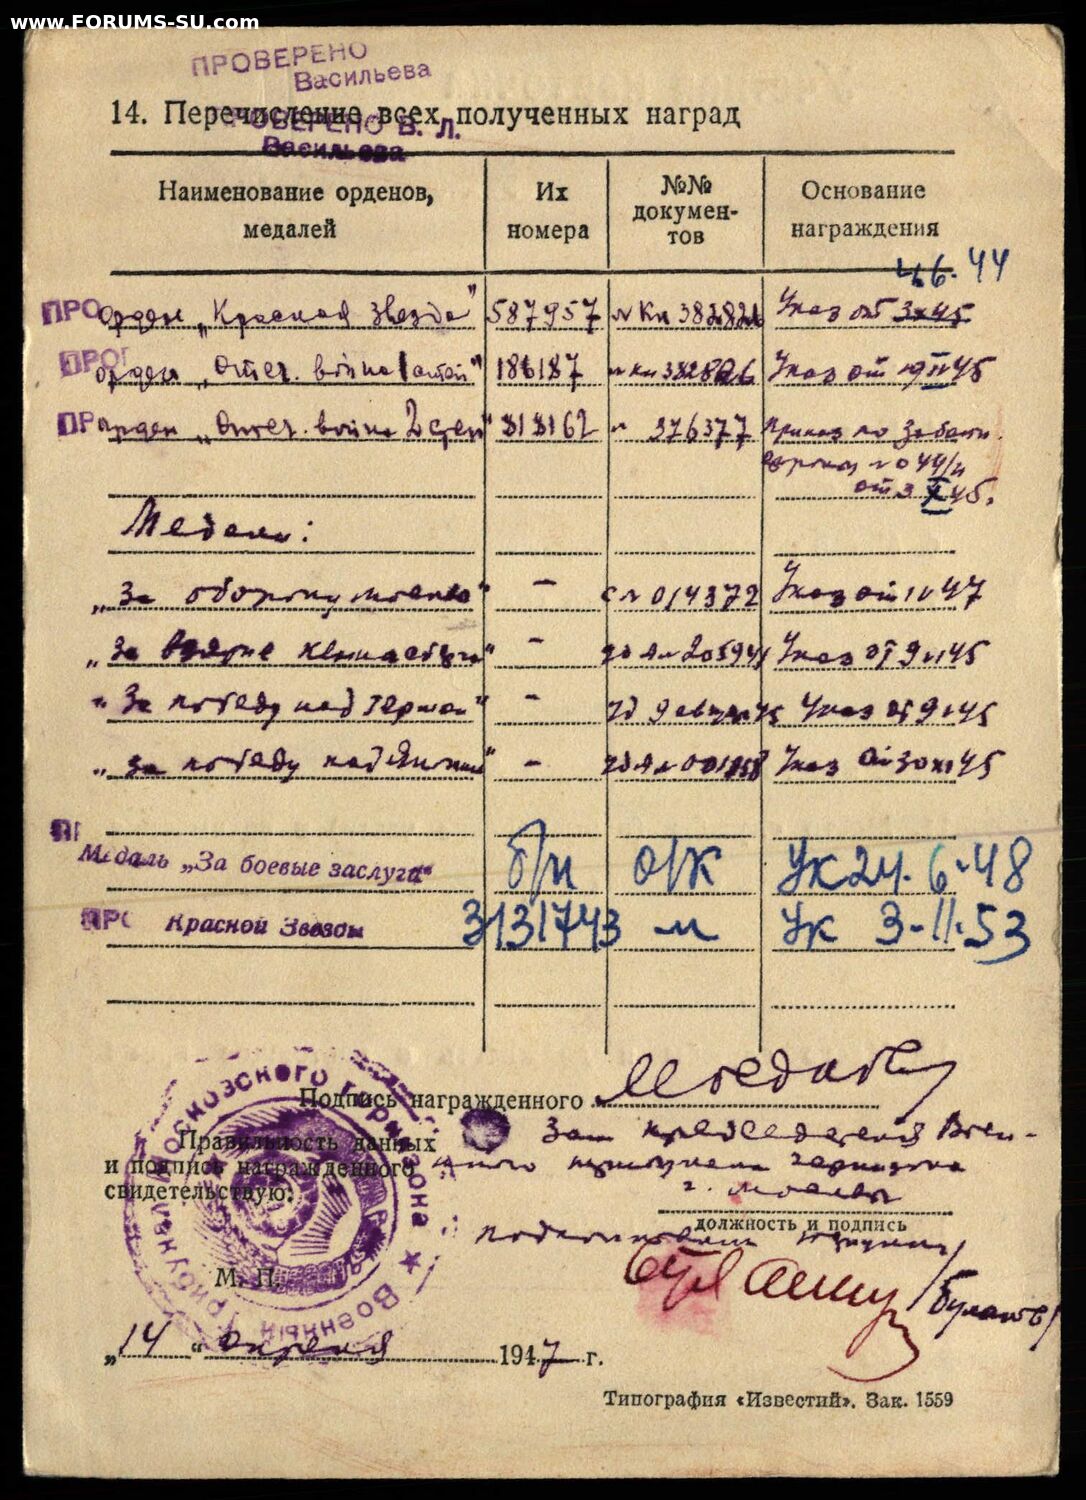 www.FORUMS-SU.com
ПРОВЕРЕНО
Васильева
14. Перечисление всех полученных наград
ПРОВЕРЕНО В. Л.
Васильева
Наименование орденов, медалей
Их номера
№№ документов
Основание награждения
4.6.44
ПРО орден „Красная звезда" 587957 № Кн 382826 Указ от 3 x 45
ПРО орден „Отеч. война 1 степ" 186187 № кн 382826 Указ от 19 II 45
ПР орден „Отеч. война 2 степ" 313162 № 376377 Приказ по Забайк.
фронту № 044/н
от 3 X 45.
Медали:
„За оборону Москвы" – с № 014372 Указ от
„За взятие Кенигсберга" – Указ от 9 45
„За победу над Герман" – Указ от 9 45
„За победу над Японией" – Указ от 30 45
ПР
Медаль „За боевые заслуги" б/н о/к Ук 24.6.48
ПРО Красной Звезды 3131743 м Ук 3-11.53
Подпись награжденного
Правильность данных
и подпись награжденного
свидетельствую:
Зам председателя Воен-
ного трибунала гарнизона
г. Москвы
должность и подпись
подполковник юстиции
/Булатов/
М. П.
Военный трибунал Московского гарнизона ★
„14" апреля 1947 г.
Типография «Известий». Зак. 1559